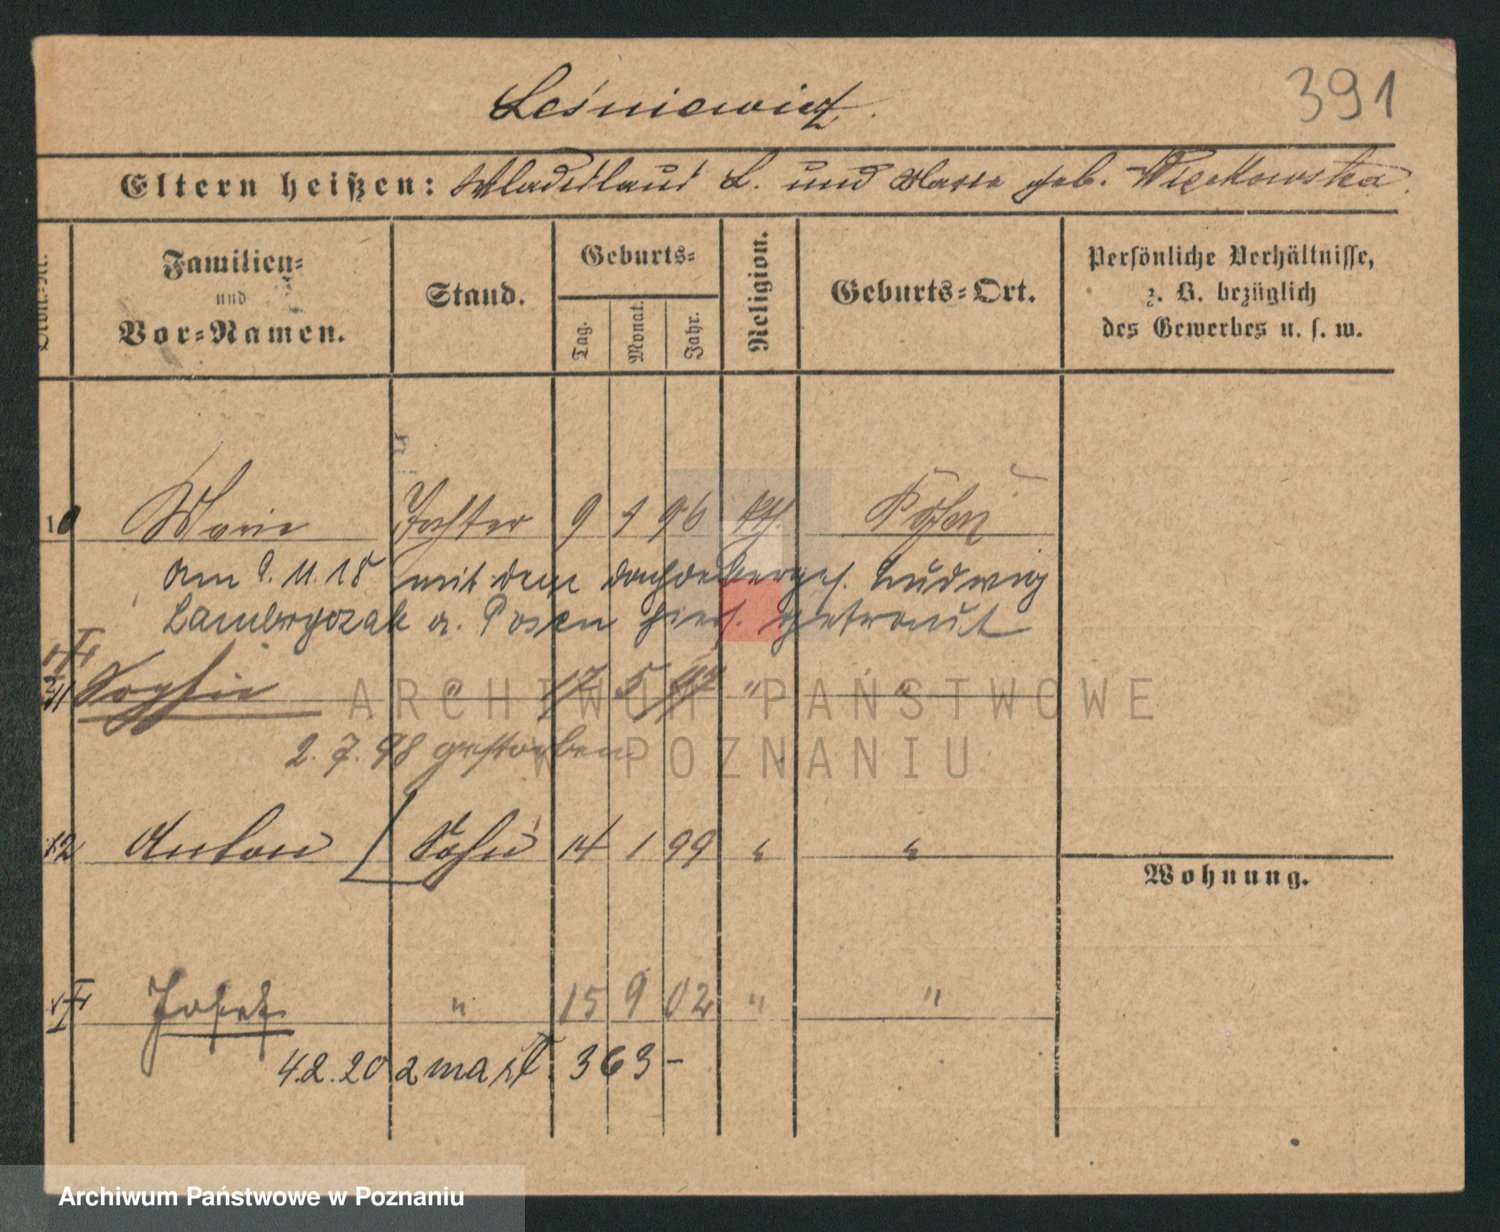 391
Leśniewicz.
Eltern heißen: Wladislaus L. und Marie geb. Więckowska.
Familien= und Vor=Namen.
Stand.
Geburts=
Tag. Monat. Jahr.
Religion.
Geburts=Ort.
Persönliche Verhältnisse,
z. B. bezüglich
des Gewerbes u. s. w.
10 Marie Tochter 9 1 96 kth Posen
Am 9.11.18 mit dem Ludwig
Lambryczak a. Posen hier getraut
11 Sophie " 17 5 97 " "
2.7.98 gestorben
12 Anton Sohn 14 1 99 " "
Wohnung.
Josef " 15 9 02 " "
4.2.20 zmarł. 363-
ARCHIWUM PAŃSTWOWE
W POZNANIU
Archiwum Państwowe w Poznaniu